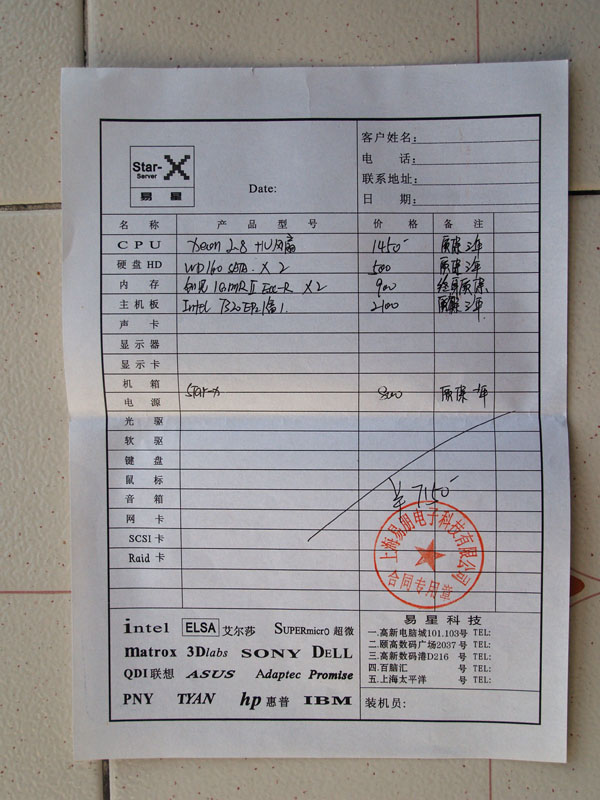 客户姓名:
电 话:
联系地址:
日 期:
Star-X
Server
易星
Date:
名 称 产 品 型 号 价 格 备 注
CPU Xeon 2.8 HU风扇 1450- 质保三年
硬盘HD WD160 SATA X2 500 质保三年
内 存 1G DDR II Ecc-R X2 900 终身质保
主机板 Intel 7320EP2 2100 质保三年
声 卡
显示器
显示卡
机 箱
电 源 Star-X 800 质保一年
光 驱
软 驱
键 盘
鼠 标
音 箱 ¥7150-
网 卡
SCSI卡
Raid 卡
上海易朋电子科技有限公司
合同专用章
intel ELSA 艾尔莎 SUPERmicrO 超微
matrox 3Dlabs SONY DELL
QDI联想 ASUS Adaptec Promise
PNY TYAN hp惠普 IBM
易星科技
一.高新电脑城101.103号 TEL:
二.颐高数码广场2037号 TEL:
三.高新数码港D216 号 TEL:
四.百脑汇 号 TEL:
五.上海太平洋 号 TEL:
装机员: